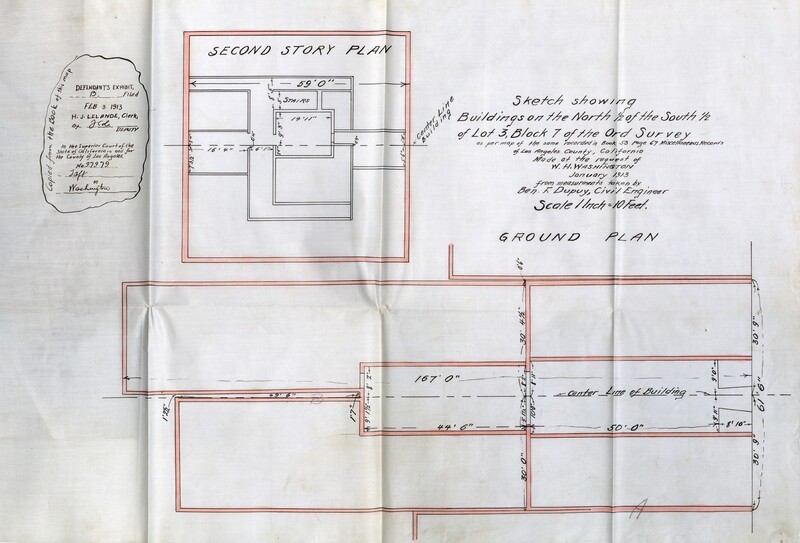 Copied from the book of this map
DEFENDANT'S EXHIBIT,
B Filed
FEB 3 1913
H. J. LELANDE, Clerk,
DEPUTY
In the Superior Court of the
State of California in and for
the County of Los Angeles
Taft
vs
Washington
SECOND STORY PLAN
59' 0"
STAIRS
19' 11"
16' 4"
Center Line
Building
Sketch showing
Buildings on the North ½ of the South ½
of Lot 3, Block 7 of the Ord Survey
as per map of the same recorded in Book 53 Page 67 Miscellaneous Records
of Los Angeles County, California
Made at the request of
W. H. WASHINGTON
January 1913
from measurements taken by
Ben F. Dupuy, Civil Engineer
Scale 1 Inch = 10 Feet.
GROUND PLAN
30' 4½"
30' 9"
167' 0"
Center Line of Building
61' 6"
49' 6"
1' 7"
44' 6"
50' 0"
8' 10"
30' 0"
30' 9"